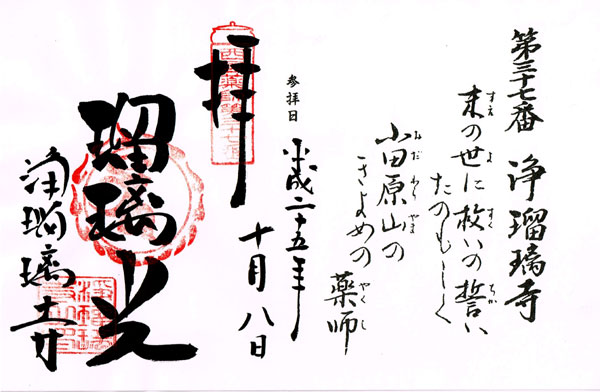 第三十七番 浄瑠璃寺
末の世に救いの誓い
すえ よ すく ちか
たのもしく
小田原山の
おだわらやま
きよめの薬師
やくし
参拝日
平成二十五年
十月八日
拝
瑠璃光
浄瑠璃寺